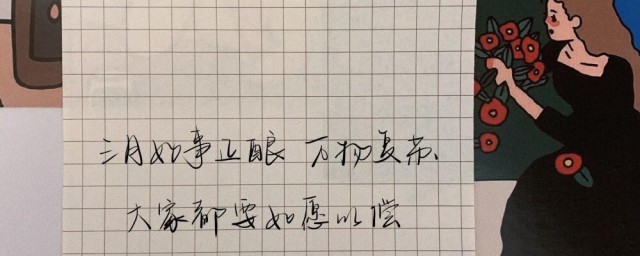 三月如事正酿 万物复苏、
大家都要如愿以偿